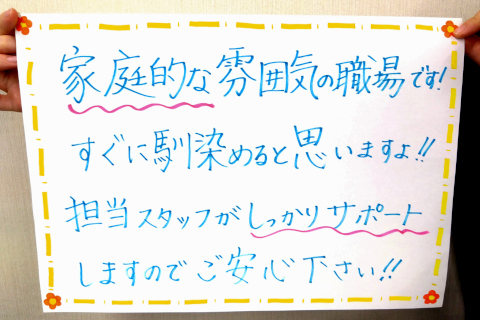 家庭的な雰囲気の職場です!
すぐに馴染めると思いますよ!!
担当スタッフがしっかりサポート
しますのでご安心下さい!!